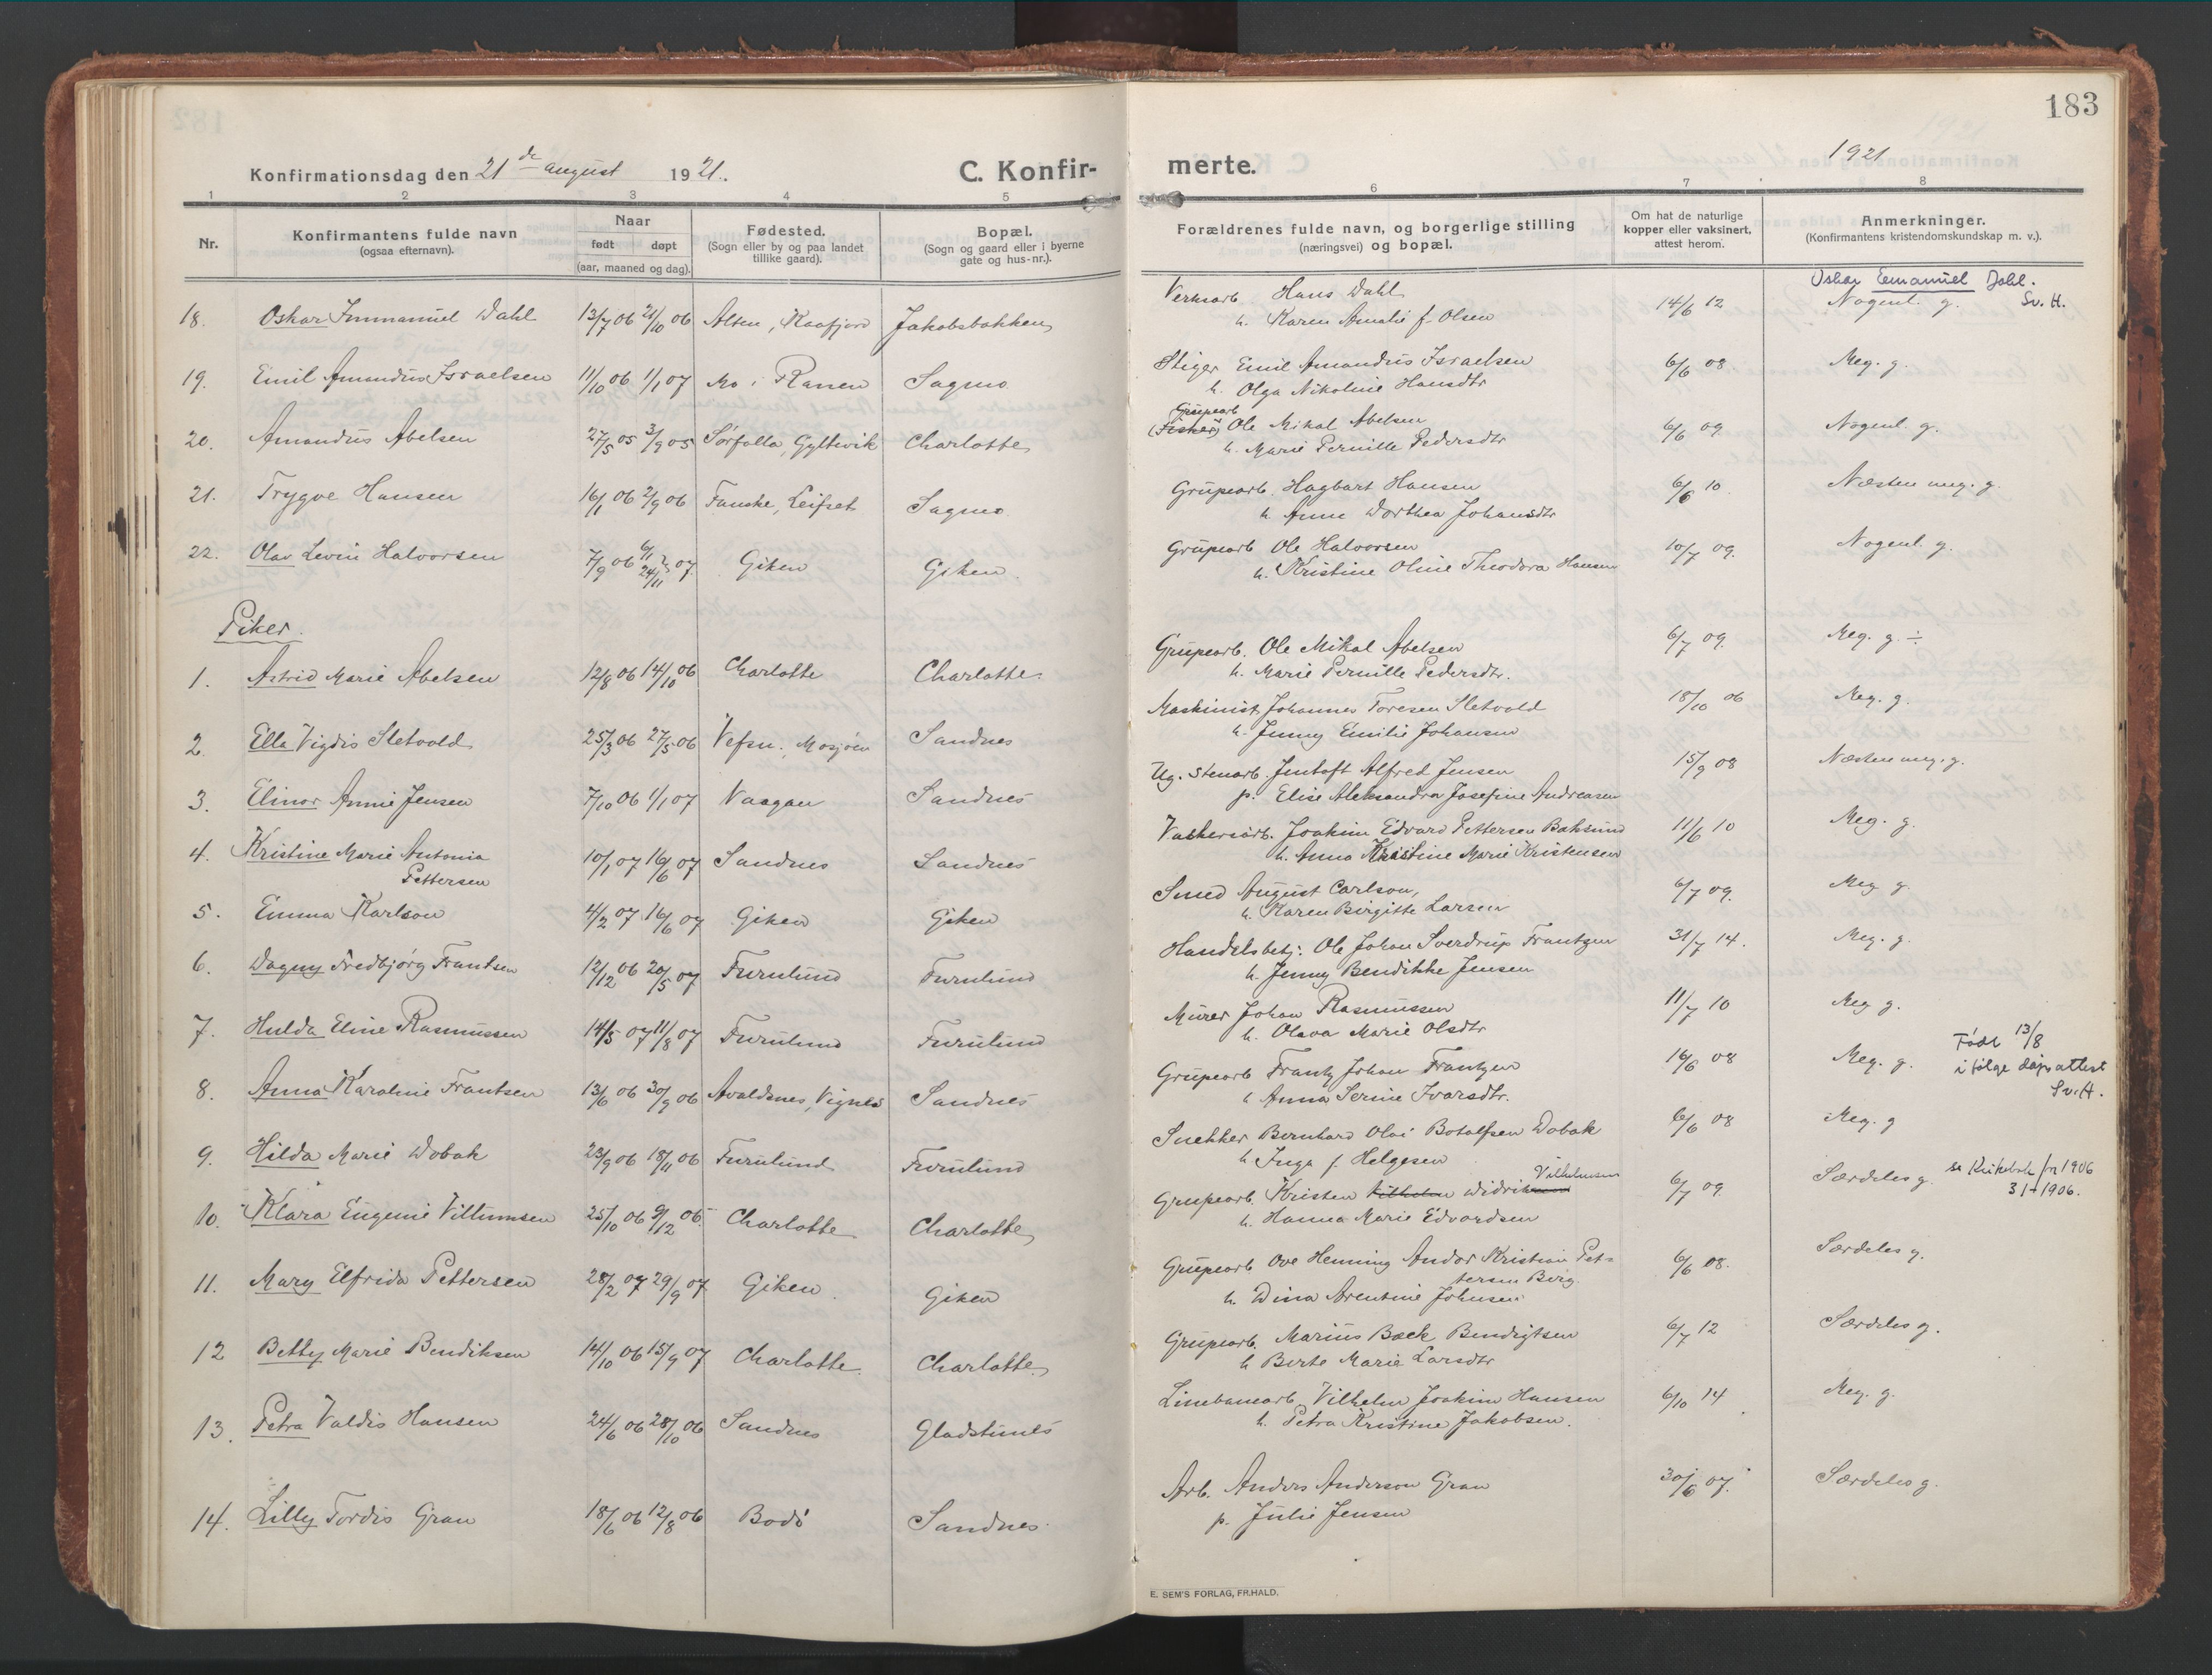 183
Konfirmationsdag den 21de august 1921.
C. Konfir-
merte.
1921
1 2 3 4 5 6 7 8
Nr.
Konfirmantens fulde navn
(ogsaa efternavn).
Naar
født døpt
(aar, maaned og dag).
Fødested.
(Sogn eller by og paa landet
tillike gaard).
Bopæl.
(Sogn og gaard eller i byerne
gate og hus-nr.).
Forældrenes fulde navn, og borgerlige stilling
(næringsvei) og bopæl.
Om hat de naturlige
kopper eller vaksinert,
attest herom.
Anmerkninger.
(Konfirmantens kristendomskundskap m. v.).
18. Oskar Immanuel Dahl 13/7 06 21/10 06 Alten, Kaafjord Jakobsbakken
Verksarb. Hans Dahl
h. Karen Amalie f. Olsen
14/6 12
Oskar Emanuel Dahl.
Nogenl. g. Sv. H.
19. Emil Amandus Israelsen 11/10 06 1/1 07 Mo i Ranen Sagmo
Stiger Emil Amandus Israelsen
h. Olga Nikoline Hansdtr
6/6 08 Meg. g.
20. Amandus Abelsen 27/5 05 3/9 05 Sørfolla, Gyltvik Charlotte
Grupearb
(Fisker) Ole Mikal Abelsen
h. Marie Pernille Pedersdtr
6/6 09 Nogenl. g.
21. Trygve Hansen 16/1 06 2/9 06 Fauske, Leifset Sagmo
Grupearb. Hagbart Hansen
h. Anne Dorthea Johansdtr
6/6 10. Næsten meg. g.
22. Olav Levin Halvorsen 7/9 06 6/1 24/11 07. Giken Giken.
Grupearb Ole Halvorsen
h. Kristine Oline Theodora Hansen
10/7 09. Nogenl. g.
Piker.
1. Astrid Marie Abelsen 12/8 06 14/10 06 Charlotte Charlotte.
Grupearb. Ole Mikal Abelsen
h. Marie Pernille Pedersdtr.
6/7 09. Meg. g. ÷
2. Ella Vigdis Sletvold 25/3 06 27/5 06 Vefsn. Mosjøen Sandnes
Maskinist Johannes Toresen Sletvold
h. Jenny Emilie Johansen
18/10 06 Meg. g.
3. Elinor Annie Jensen 7/10 06 1/1 07 Vaagan Sandnes
Ug. Stenarb. Jentoft Alfred Jensen
p. Elise Aleksandra Josefine Andreasen
15/9 08 Næsten meg. g.
4. Kristine Marie Antonia
Pettersen
10/1 07 16/6 07 Sandnes Sandnes
Vaskeriarb. Joakim Edvard Pettersen Baksund
h. Anna Kristine Marie Kristensen
11/6 10 Meg. g.
5. Emma Karlson 4/2 07 16/6 07 Giken Giken
Smed August Carlson,
h. Karen Birgitte Larsen
6/7 09. Meg g.
6. Dagny Fredbjørg Frantsen 12/12 06 20/5 07 Furulund Furulund
Handelsbetj. Ole Johan Sverdrup Frantzen
h. Jenny Bendikke Jensen
31/7 14. Meg. g.
7. Hulda Eline Rasmussen 14/5 07 11/8 07 Furulund Furulund
Murer Johan Rasmussen
h. Olava Marie Olsdtr
11/7 10 Meg g.
8. Anna Karoline Frantsen 13/6 06 30/9 06 Avaldsnes, Vignes Sandnes
Grupearb Frantz Johan Frantzen
h Anna Serine Ivarsdtr.
16/6 08 Meg. g.
Født 13/8
i følge dåpsattest
Sv. H.
9. Hilda Marie Dobak 23/9 06 18/11 06 Furulund Furulund
Snekker Bernhard Olai Botolfsen Dobak
h Inga f. Helgesen
6/6 08 Meg. g
10. Klara Eugenie Viltumsen 25/10 06 9/12 06. Charlotte Charlotte
Grupearb. Kristen Vilhelm Didriksen Vilhelmsen
h. Hanna Marie Edvardsen
6/7 09. Særdeles g.
se Kirkebok for 1906
31-1906.
11. Mary Elfrida Pettersen 28/2 07 29/9 07 Giken. Giken
Grupearb Ove Henning Andor Kristian Pet-
tersen Berg.
h. Dina Arentine Johnsen
6/6 08. Særdeles g.
12 Betty Marie Bendiksen 14/10 06 15/9 07 Charlotte. Charlotte
Grupearb. Marius Bæck Bendigtsen
h Berte Marie Larsdtr
6/7 12 Særdeles g.
13. Petra Valdis Hansen 24/6 06 28/10 06 Sandnes Gladstunes
Linebanearb. Vilhelm Joakim Hansen
h. Petra Kristine Jakobsen.
6/10 14 Meg. g.
14. Lilly Tordis Gran 18/6 06 12/8 06 Bodø Sandnes.
Arb. Anders Anderson Gran
p. Julie Jensen
30/6 07. Særdeles g.
E. SEM'S FORLAG, FR.HALD.